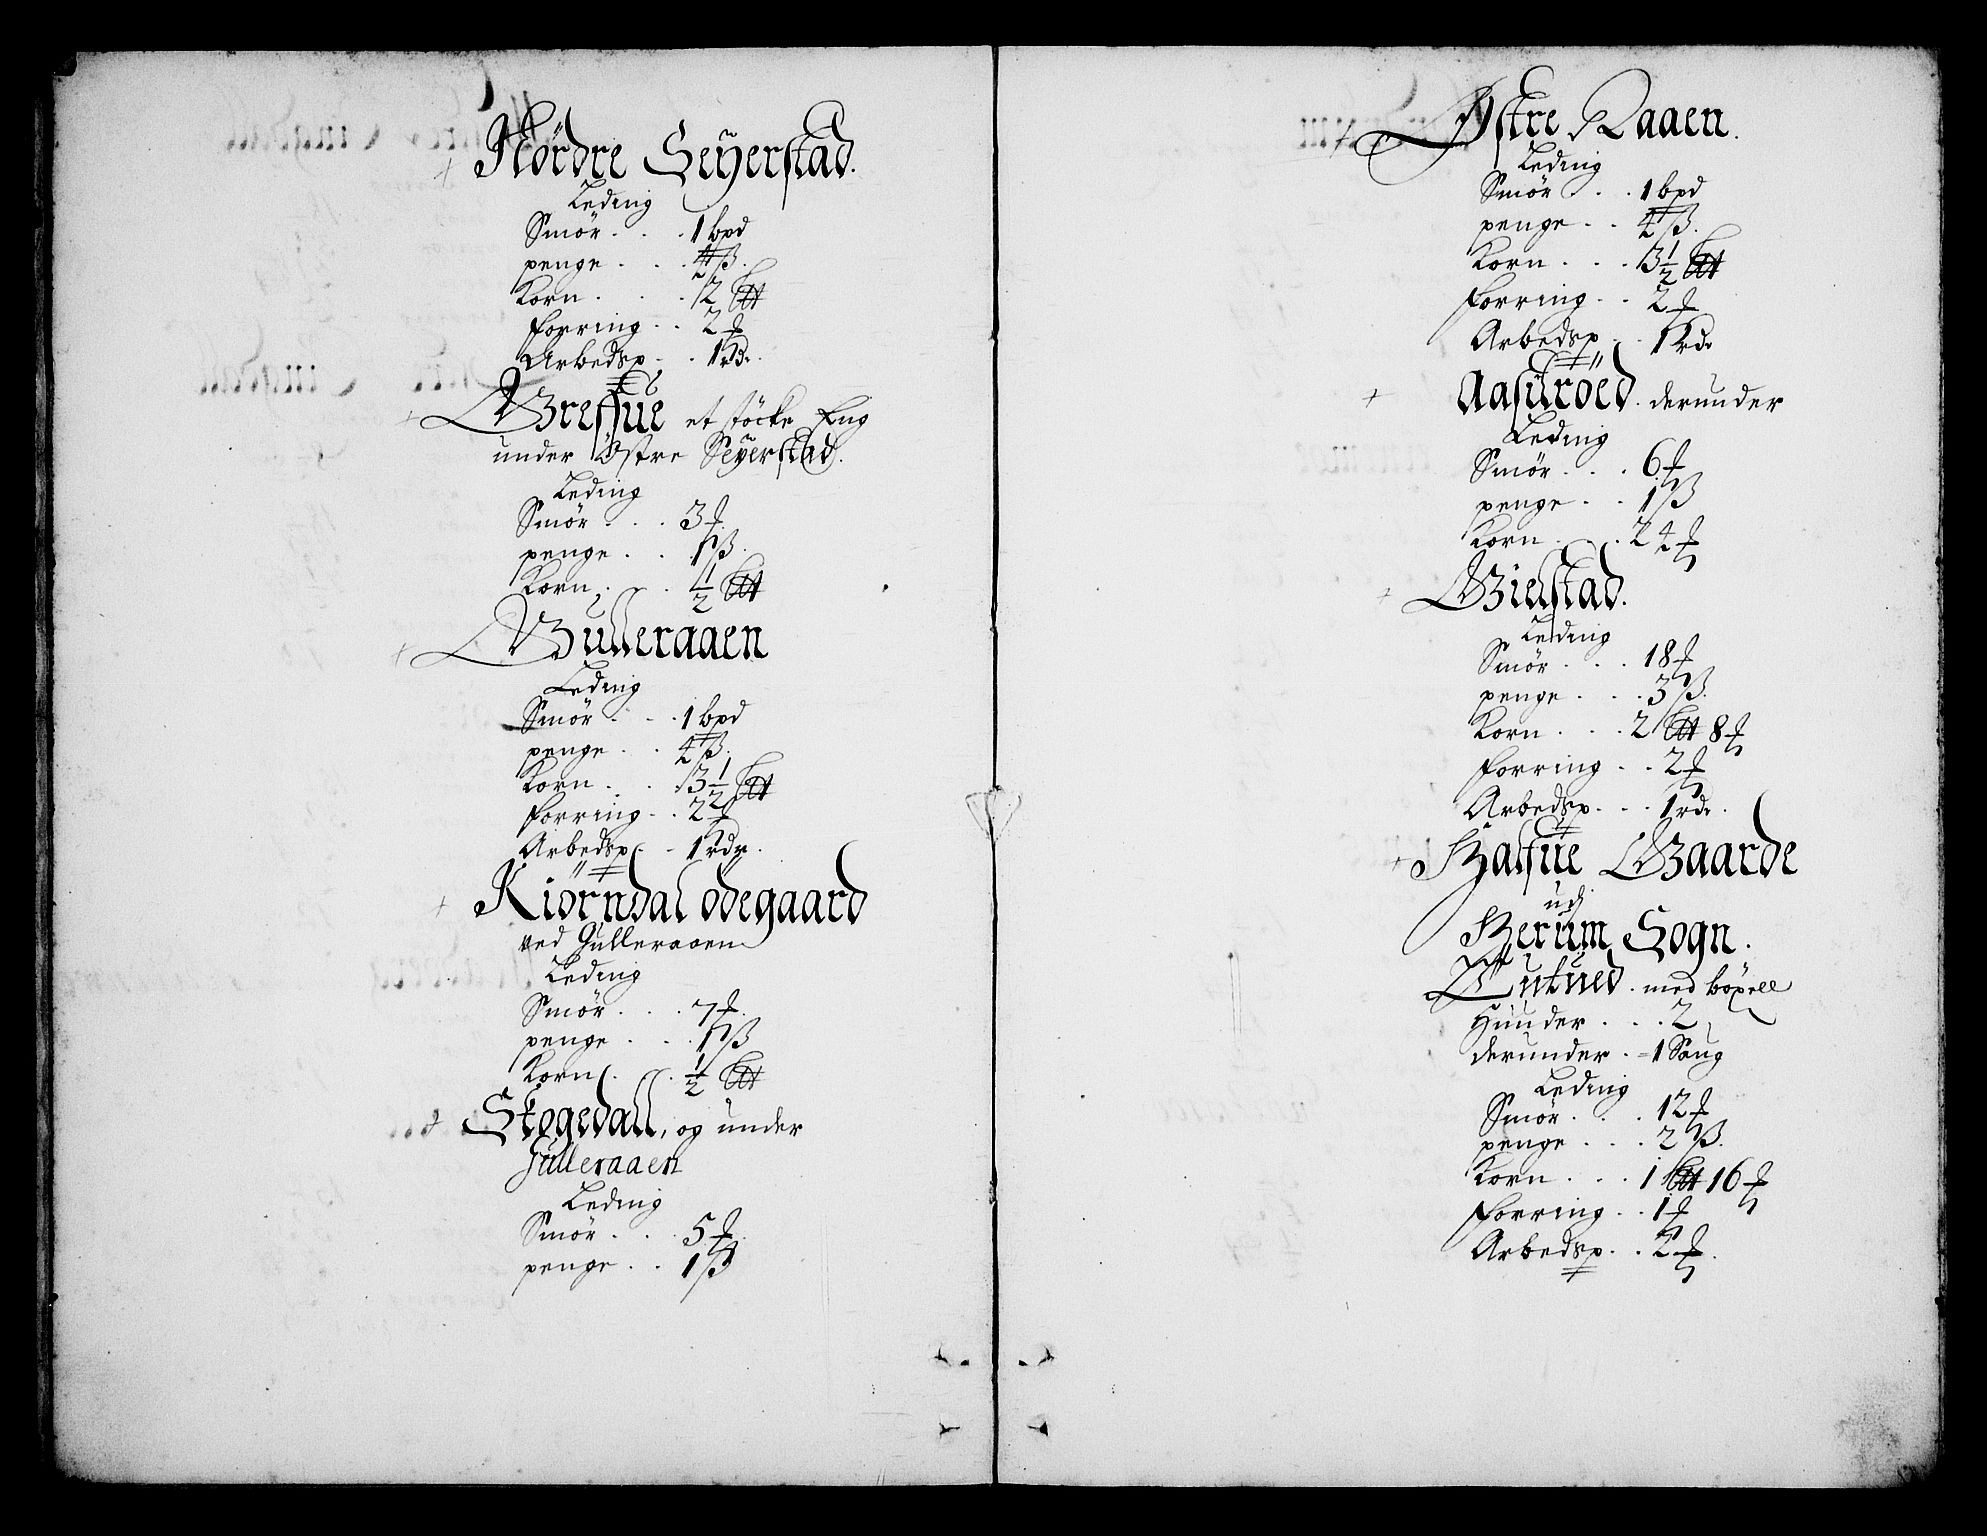 Nórdre Seÿerstad.
Leding
Smör . . . 1 bpd
penge . . . 4 ß.
Korn . . . 2
forring . . 2
Arbedsp . . 1 rdr.
Gresfue et støcke Eng
under Östre Seyerstad.
Leding
Smör . . . 3
penge . . . 1 ß.
Korn . . . ½
Gulleraaen
Leding
Smör . . . 1 bpd
penge . . . 4 ß.
Korn . . . 3½
forring . . 2
Arbedsp . . 1 rdr.
Kiörndal ödegaard
ved Gulleraaen
Leding
Smör . . . 7
penge . . . 1 ß
Korn . . . ½
Skogedall, og under
Gulleraaen
Leding
Smör . . . 5
penge . . 1 ß
Østre Raaen.
Leding
Smör . . . 1 bpd
penge . . 4 ß.
Korn . . . 3½
forring . . 2
Arbedsp . . 1 rdr
Aaseröed. derunder
Leding
Smör . . . 6
penge . . 1 ß
Korn . . . 2
Gielstad.
Leding
Smör . . . 18
penge . . . 3 ß.
Korn . . . 2 8
forring . . 2
Arbedsp . . . 1 rdr.
Halfue Gaarde
udj
Berüm Sogn.
med
Hünder . . . 2
derunder . = 1 Saug
Leding
Smör . . . 12
penge . . . 2 ß.
Korn . . . 1 16
forring . . 1
Arbedsp . . 2